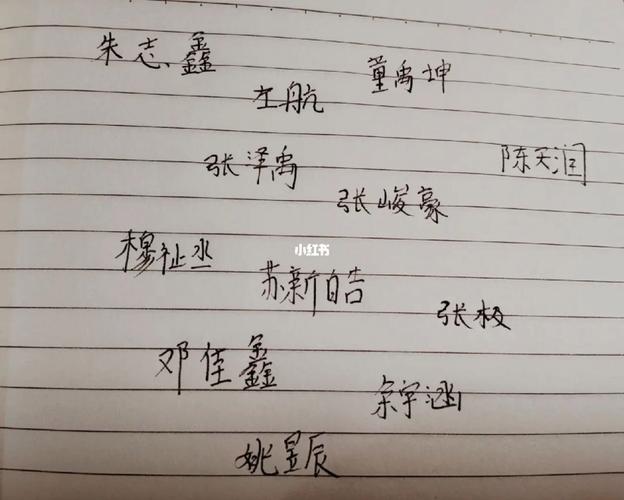 朱志鑫
童禹坤
左航
张泽禹
陈天润
张峻豪
穆祉丞
小红书
苏新皓
张极
邓佳鑫
余宇涵
姚昱辰